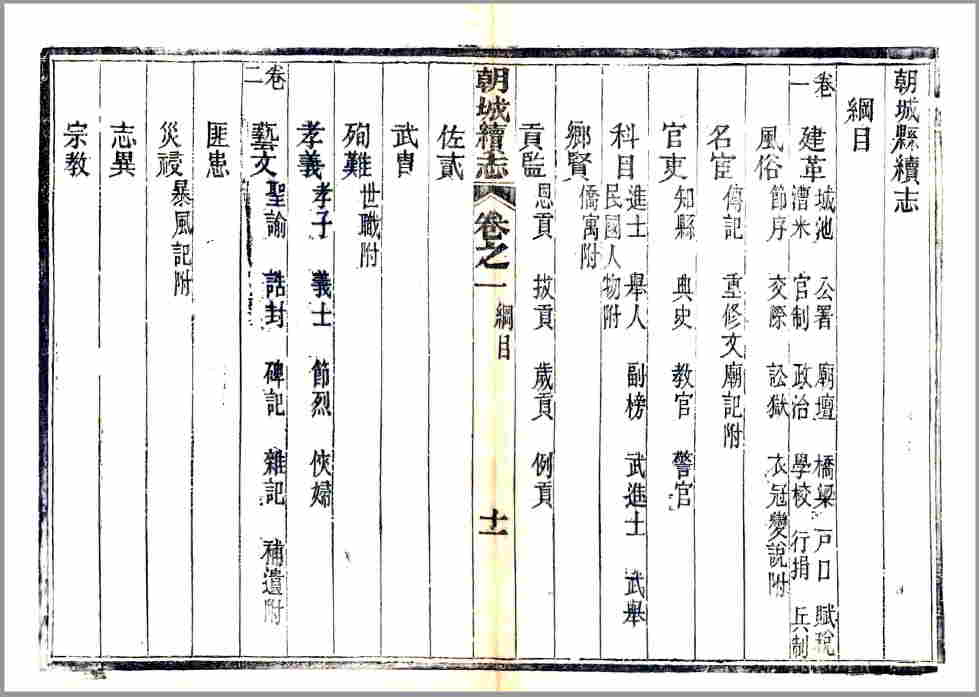 朝城縣續志
綱目
卷一
建革 城池 公署 廟壇 橋梁 戶口 賦稅
漕米 官制 政治 學校 行捐 兵制
風俗 節序 交際 訟獄 衣冠變說附
名宦 傳記 重修文廟記附
官吏 知縣 典史 教官 警官
科目 進士 舉人 副榜 武進士 武舉
民國人物附
鄉賢 僑寓附
貢監 恩貢 拔貢 歲貢 例貢
朝城續志 卷之一 綱目 十一
佐貳
武胄
殉難 世職附
孝義 孝子 義士 節烈 俠婦
卷二
藝文 聖諭 誥封 碑記 雜記 補遺附
匪患
災祲 暴風記附
志異
宗教